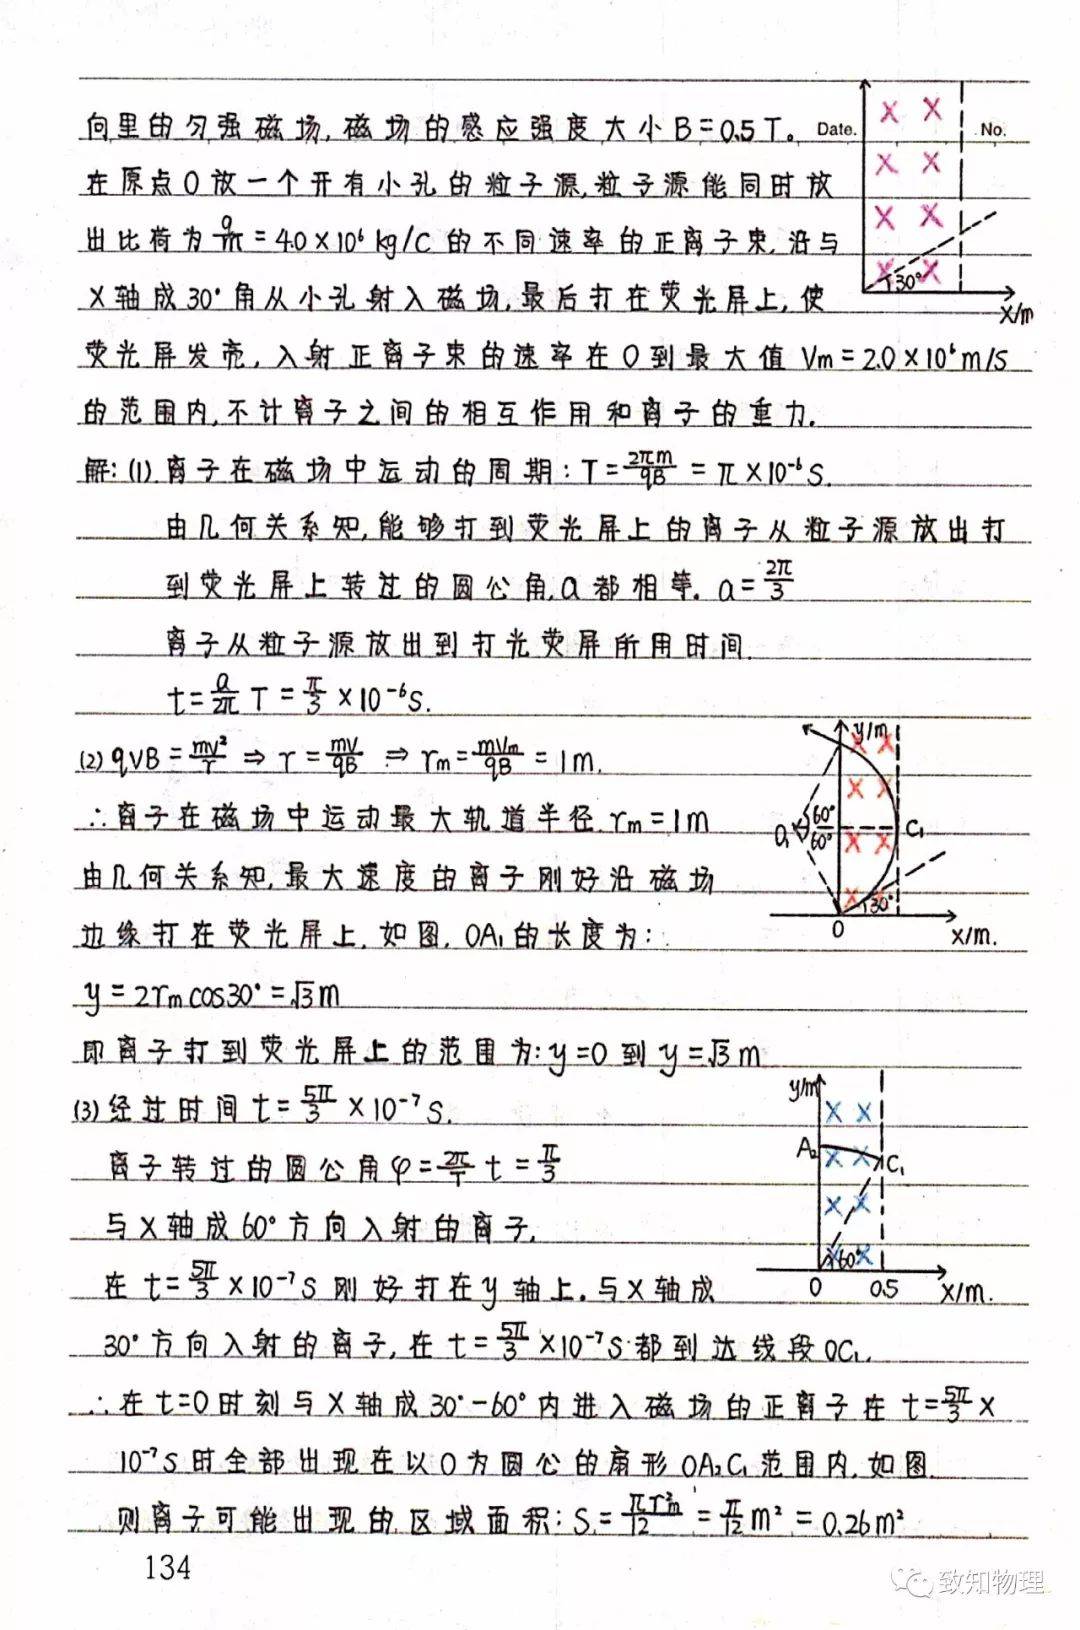 向里的匀强磁场,磁场的感应强度大小B=0.5T。 Date. No.
在原点O放一个开有小孔的粒子源,粒子源能同时放
出比荷为q/m=4.0×10⁶kg/C的不同速率的正离子束,沿与
X轴成30°角从小孔射入磁场,最后打在荧光屏上,使
30°
X/m
荧光屏发亮,入射正离子束的速率在0到最大值Vm=2.0×10⁶m/s
的范围内,不计离子之间的相互作用和离子的重力.
解:(1)离子在磁场中运动的周期:T=2πm/qB=π×10⁻⁶S.
由几何关系知,能够打到荧光屏上的离子从粒子源放出打
到荧光屏上转过的圆心角,a都相等.a=2π/3
离子从粒子源放出到打光荧屏所用时间.
t=a/2π T=π/3×10⁻⁶S.
(2)qVB=mV²/r⇒r=mV/qB⇒rm=mVm/qB=1m.
∴离子在磁场中运动最大轨道半径.rm=1m
由几何关系知,最大速度的离子刚好沿磁场
边缘打在荧光屏上.如图.OA₁的长度为:
y/m
60°
60°
O₁
C₁
30°
0
X/m.
y=2rmcos30°=√3m
即离子打到荧光屏上的范围为:y=0到y=√3m
(3)经过时间t=5π/3×10⁻⁷S.
离子转过的圆心角φ=2π/T t=π/3
与X轴成60°方向入射的离子.
在t=5π/3×10⁻⁷S刚好打在y轴上.与X轴成
y/m
A₂
C₁
60°
0
0.5
X/m.
30°方向入射的离子,在t=5π/3×10⁻⁷S都到达线段OC₁.
∴在t=0时刻与X轴成30°-60°内进入磁场的正离子在t=5π/3×
10⁻⁷S时全部出现在以O为圆心的扇形OA₂C₁范围内.如图.
则离子可能出现的区域面积:S=πrm²/12=π/12m²=0.26m²
134
致知物理